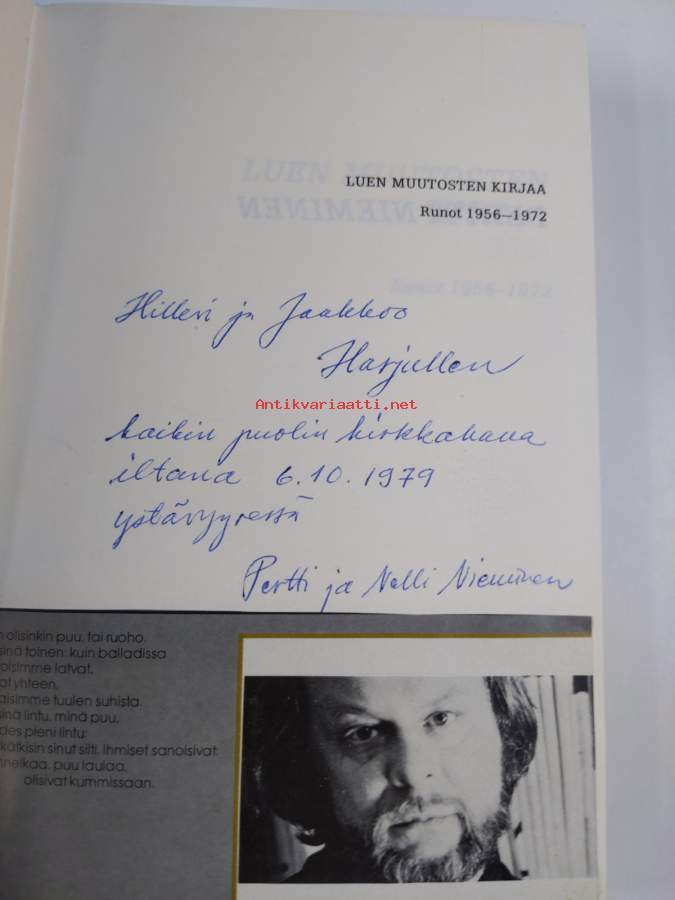 LUEN MUUTOSTEN KIRJAA
Runot 1956–1972
Hilleri ja Jaakkoo
Harjullen
Antikvariaatti.net
kaikin puolin kirkkahana
iltana 6.10.1979
ystävyyressä
Pertti ja Nelli Nieminen
olisinkin puu, tai ruoho,
sinä toinen: kuin balladissa
oisimme latvat,
at yhteen,
aisimme tuulen suhista.
sinä lintu, minä puu,
des pieni lintu:
kätkisin sinut silti. Ihmiset sanoisivat:
nnelkaa, puu laulaa,
olisivat kummissaan.